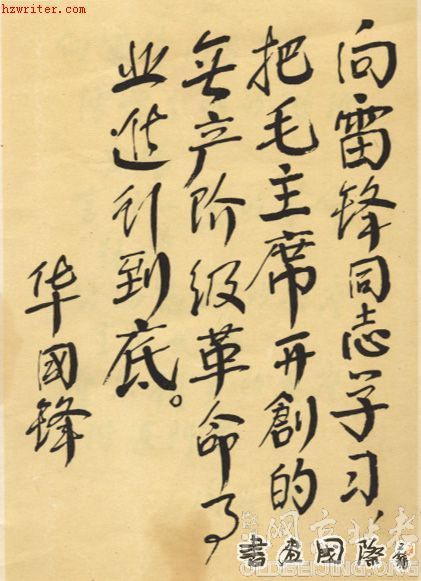 hzwriter.com
向雷锋同志学习，
把毛主席开創的
無产阶级革命事
业進行到底。
华國锋
書画國際
老北京网
OLDBEIJING.ORG